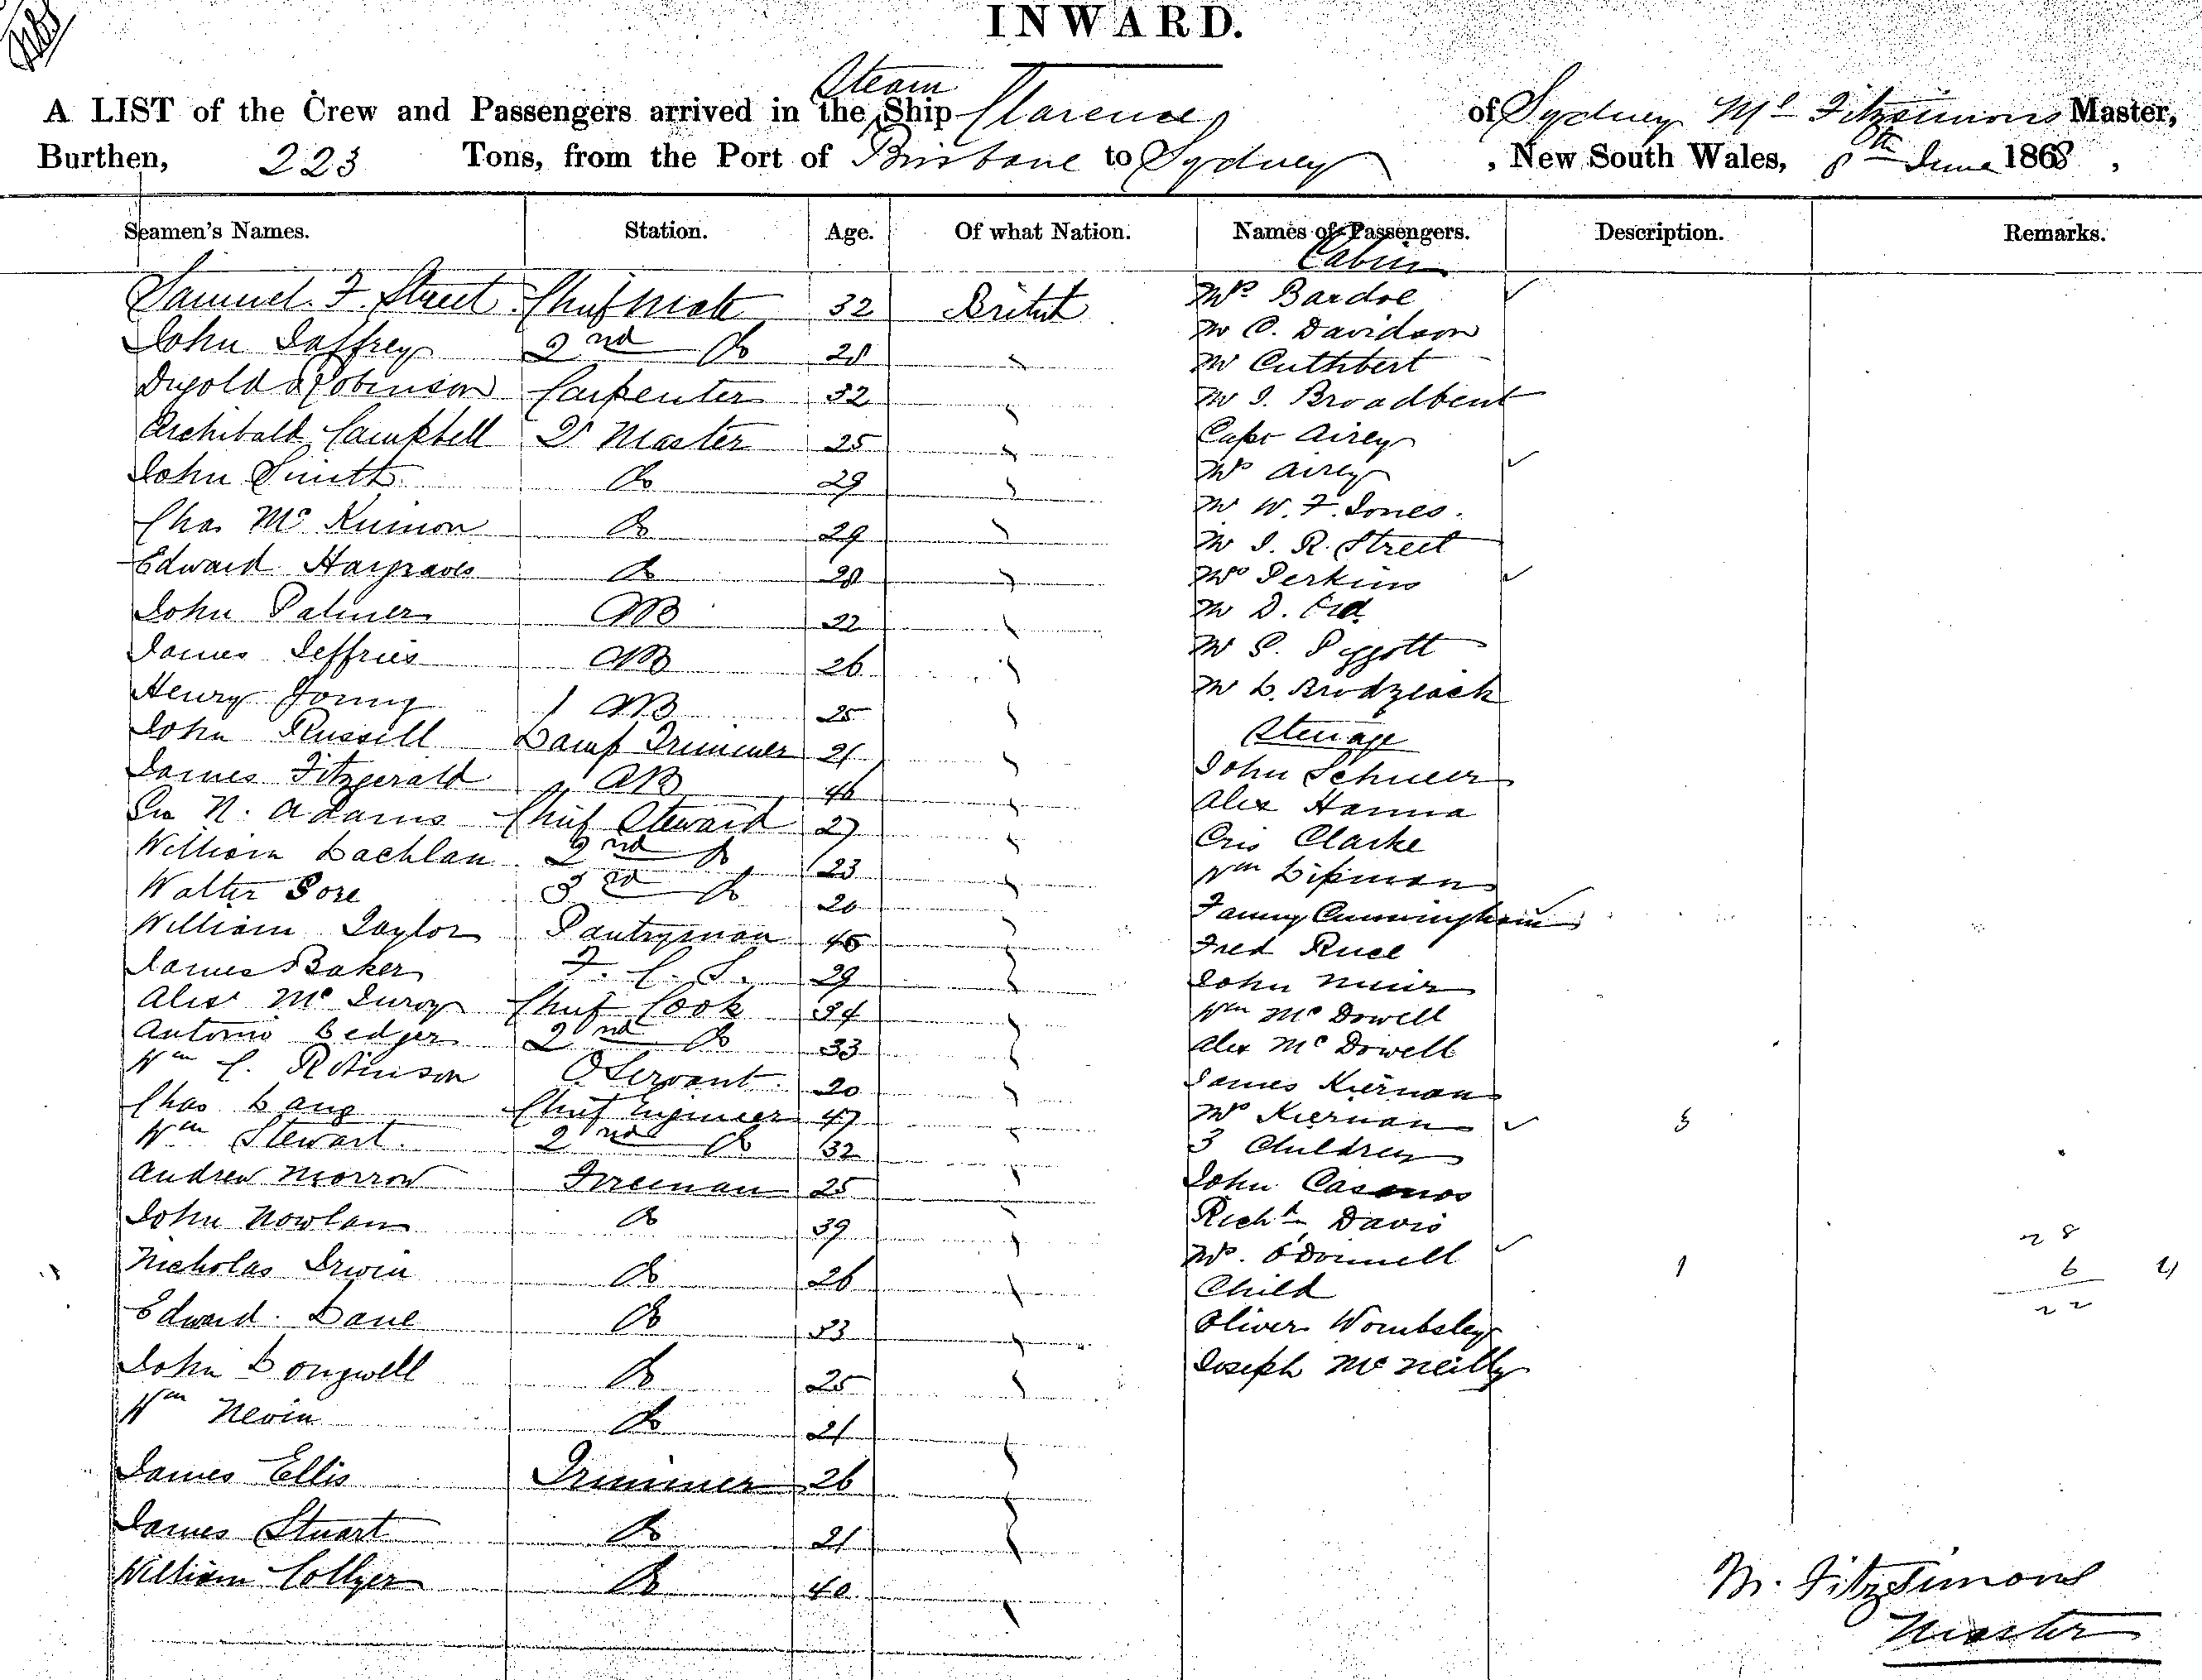 INWARD.
A LIST of the Crew and Passengers arrived in the Steam Ship Clarence of Sydney Fitzsimons Master,
Burthen, 223 Tons, from the Port of Brisbane to Sydney, New South Wales, 8th June 1868,
Seamen's Names. Station. Age. Of what Nation. Names of Passengers. Description. Remarks.
Cabin
Samuel F. Street Chief Mate 32 British Mrs Bardoe
John Jaffrey 2nd Do 28 Mr C. Davidson
Robinson Carpenter 32 Mr Cuthbert
Archibald Campbell Qr Master 25 Mr J. Broadbent
John Smith Do 29 Capt Airey
Chas McKinnon Do 29 Mrs Airey
Edward Hargraves Do 28 Mr W. F. Jones.
John Palmer AB 22 Mr J. R. Street
James Jeffries AB 26 Mrs Perkins
Henry Young AB 25 Mr D.
John Russell Lamp Trimmer 21 Mr S. Pyggott
James Fitzgerald AB 46 Mr L. Brodziack
Steerage
Geo N. Adams Chief Steward 27 John Schneer
William Lachlan 2nd Do 23 Alex Hanna
Walter Gore 3rd Do 20 Cris Clarke
William Taylor Pantryman 45 Wm Lipman
James Baker F. C. S. 29 Fanny Cunningham
Alexr Mc Chief Cook 34 Fred Ruce
Antonio Ledger 2nd Do 33 John Muir
Wm C. Robinson O Servant 20 Wm McDowell
Chas Lang Chief Engineer 47 Alex McDowell
Wm Stewart 2nd Do 32 James Kiernan
Andrew Morrow Fireman 25 Mrs Kiernan 3
John Nowlan Do 39 3 Children
Nicholas Irwin Do 26 John
Edward Lane Do 33 Richd Davis 28
John Longwell Do 25 Mrs. O'Donnell 1 6
Wm Nevin Do 21 Child 22
James Ellis Trimmer 26 Oliver Wombsley
James Stuart Do 21 Joseph McNeilly
William Collyer Do 40
M. Fitzsimons
Master